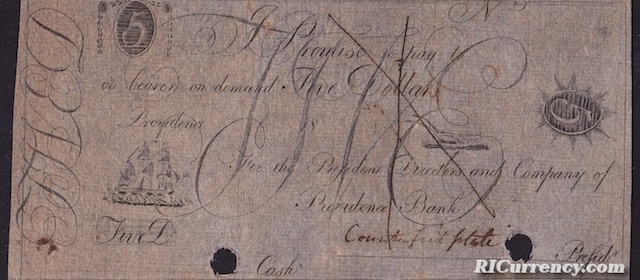 5
No
I Promise to pay to
or bearer on demand Five Dollars
FIVE D
Providence 18
5
For the President Directors and Company of
Providence Bank
Five D
Counterfeit plate
Cashr
Presidt
RICurrency.com